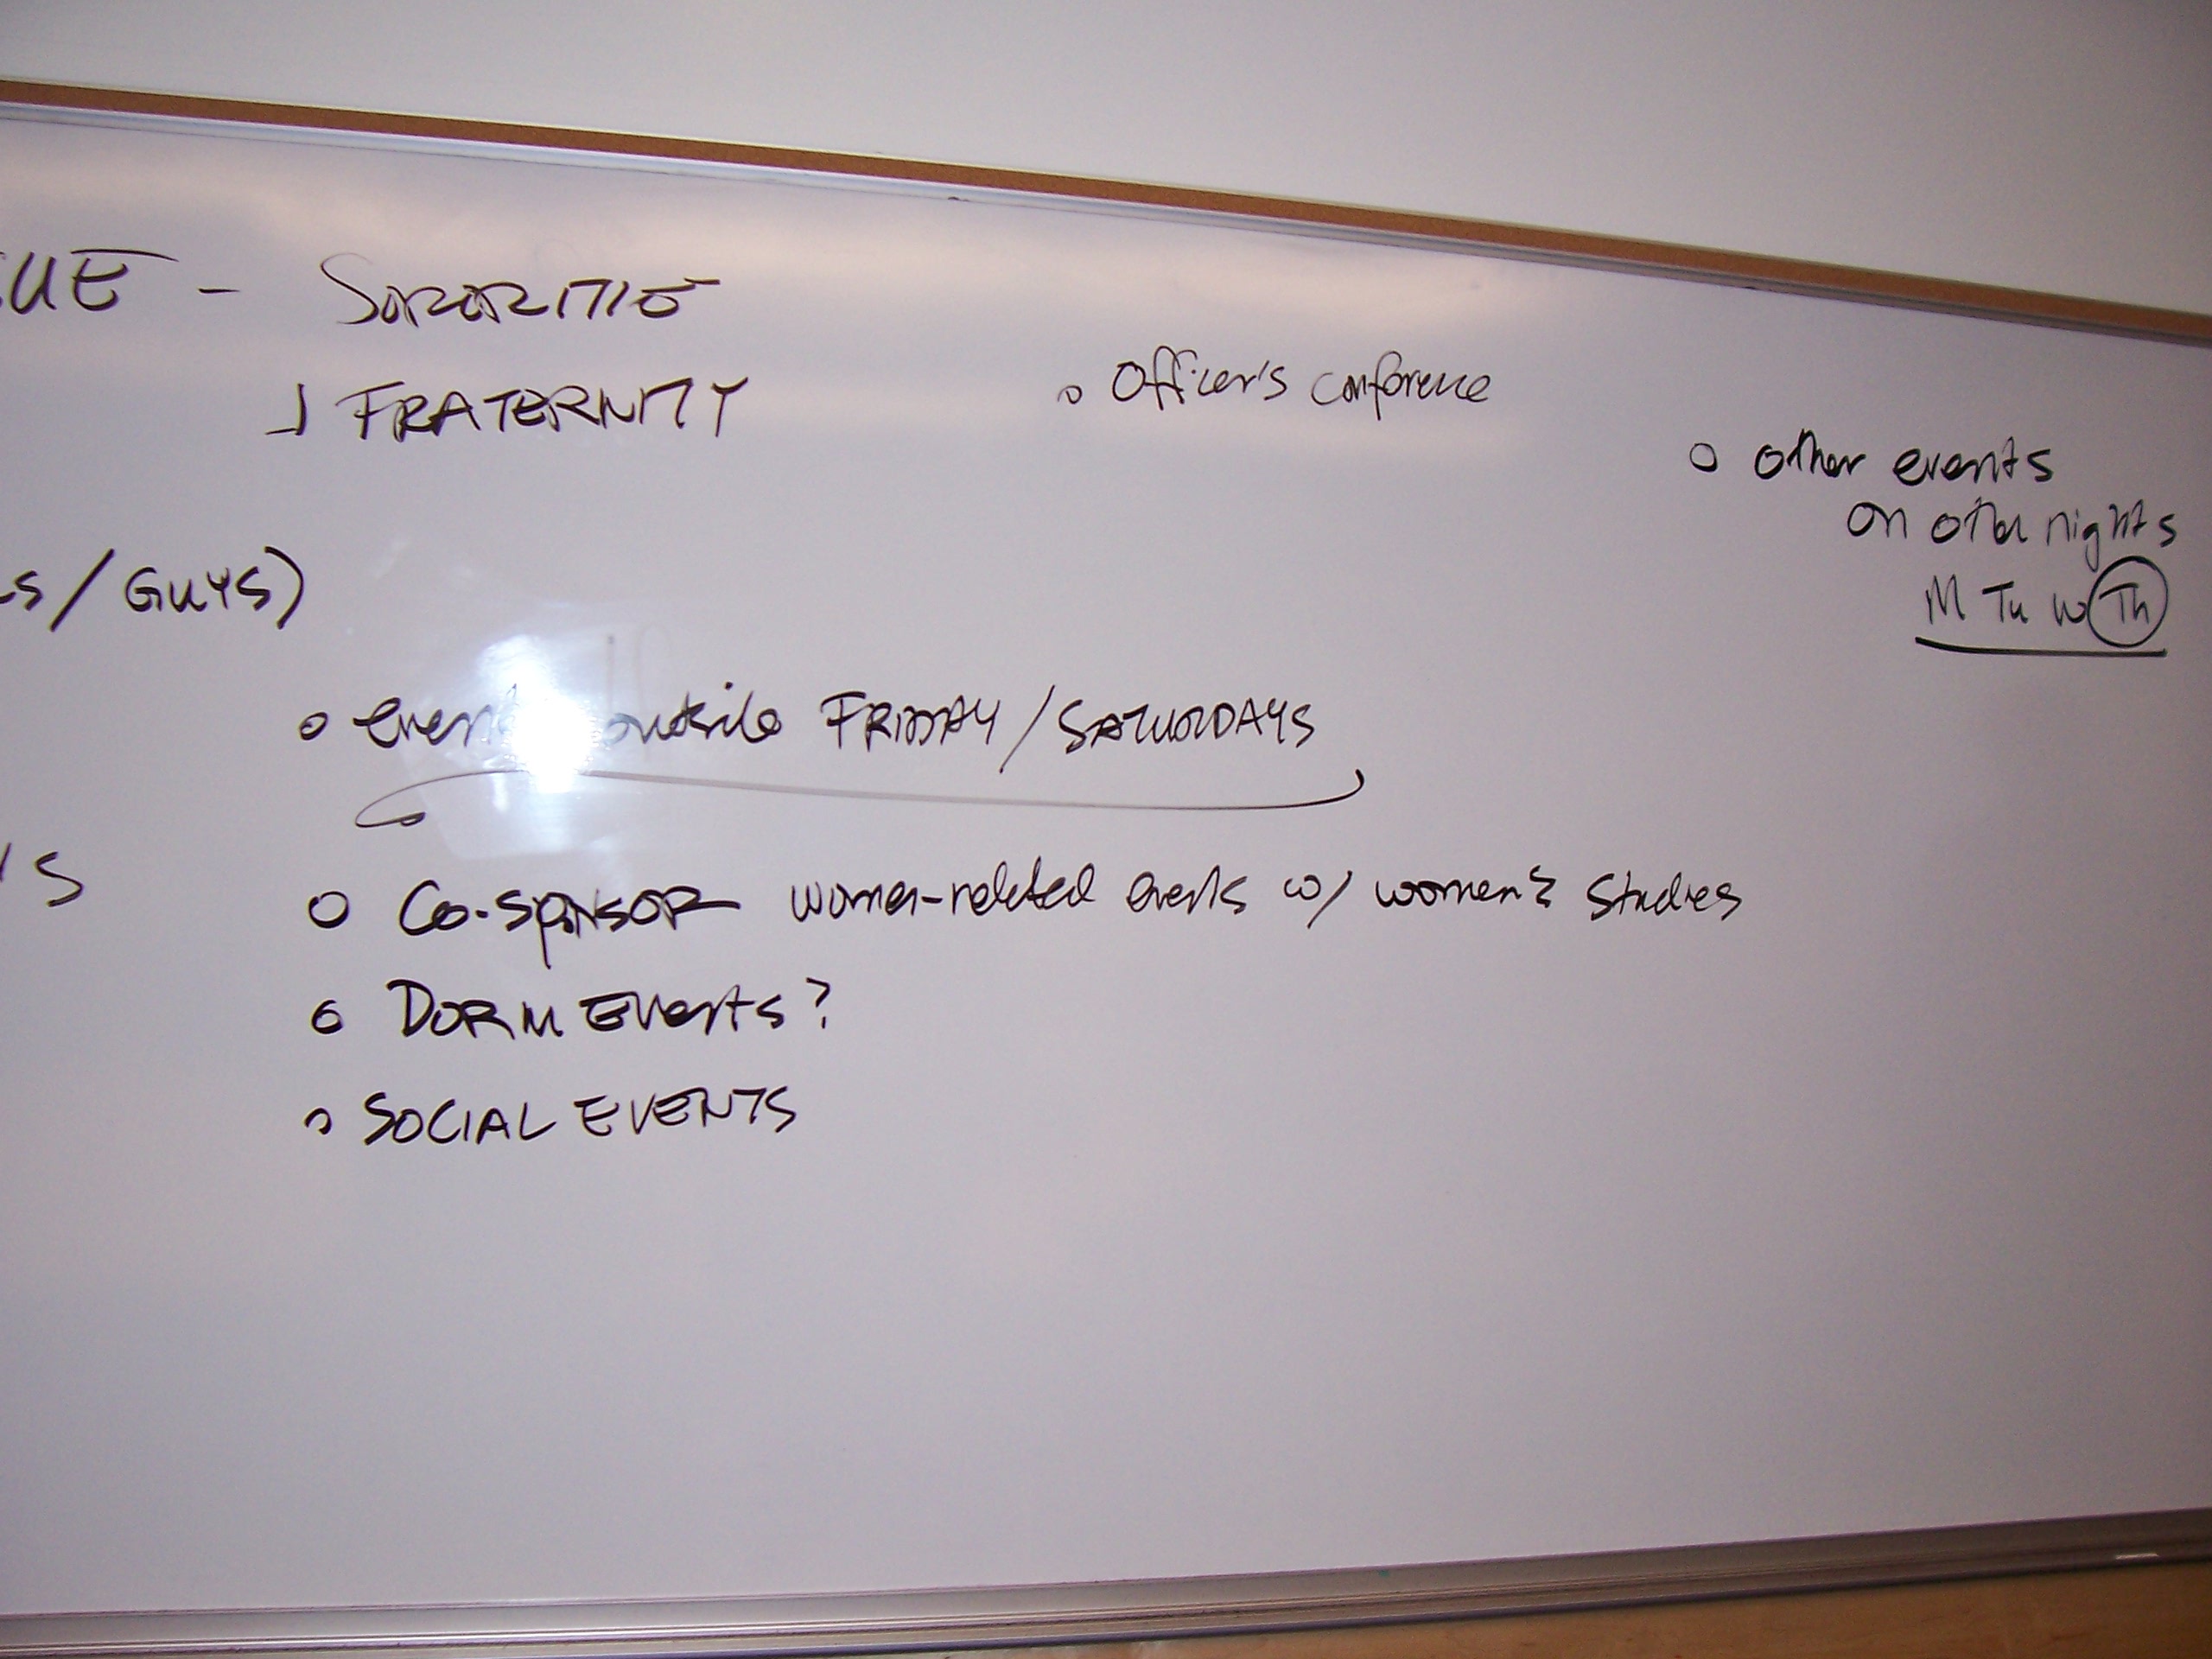 UE - SORORITIE
FRATERNITY
o Officer's conference
o other events
on other nights
M Tu W Th
S / GUYS)
o events outside FRIDAY / SATURDAYS
S
o CO-SPONSOR women-related events w/ women's studies
o DORM Events?
o SOCIAL EVENTS